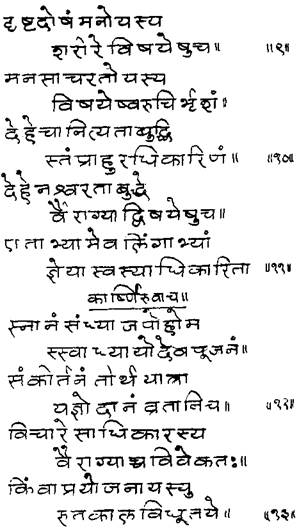 दृष्टदोषं मनो यस्य
शरीरे विषयेषु च॥ ॥९॥
मनसा चरतो यस्य
विषयेष्वरुचिर्भृशं॥
देहे चानित्यता बुद्धि
स्तं प्राहुरधिकारिणं॥ ॥१०॥
देहे नश्वरता बुद्धे
र्वैराग्याद्विषयेषु च॥
एताभ्यामेव लिंगाभ्यां
ज्ञेया स्वस्याधिकारिता ॥११॥
कार्ष्णिरुवाच॥
स्नानं संध्या जपो होम
स्स्वाध्यायो देव पूजनं॥
संकीर्तनं तीर्थ यात्रा
यज्ञो दानं व्रतानि च॥ ॥१२॥
विचारे साधिकारस्य
वैराग्याच्च विवेकतः॥
किंवा प्रयोजनाय स्यु
हृतकाल विधूतये॥ ॥१३॥